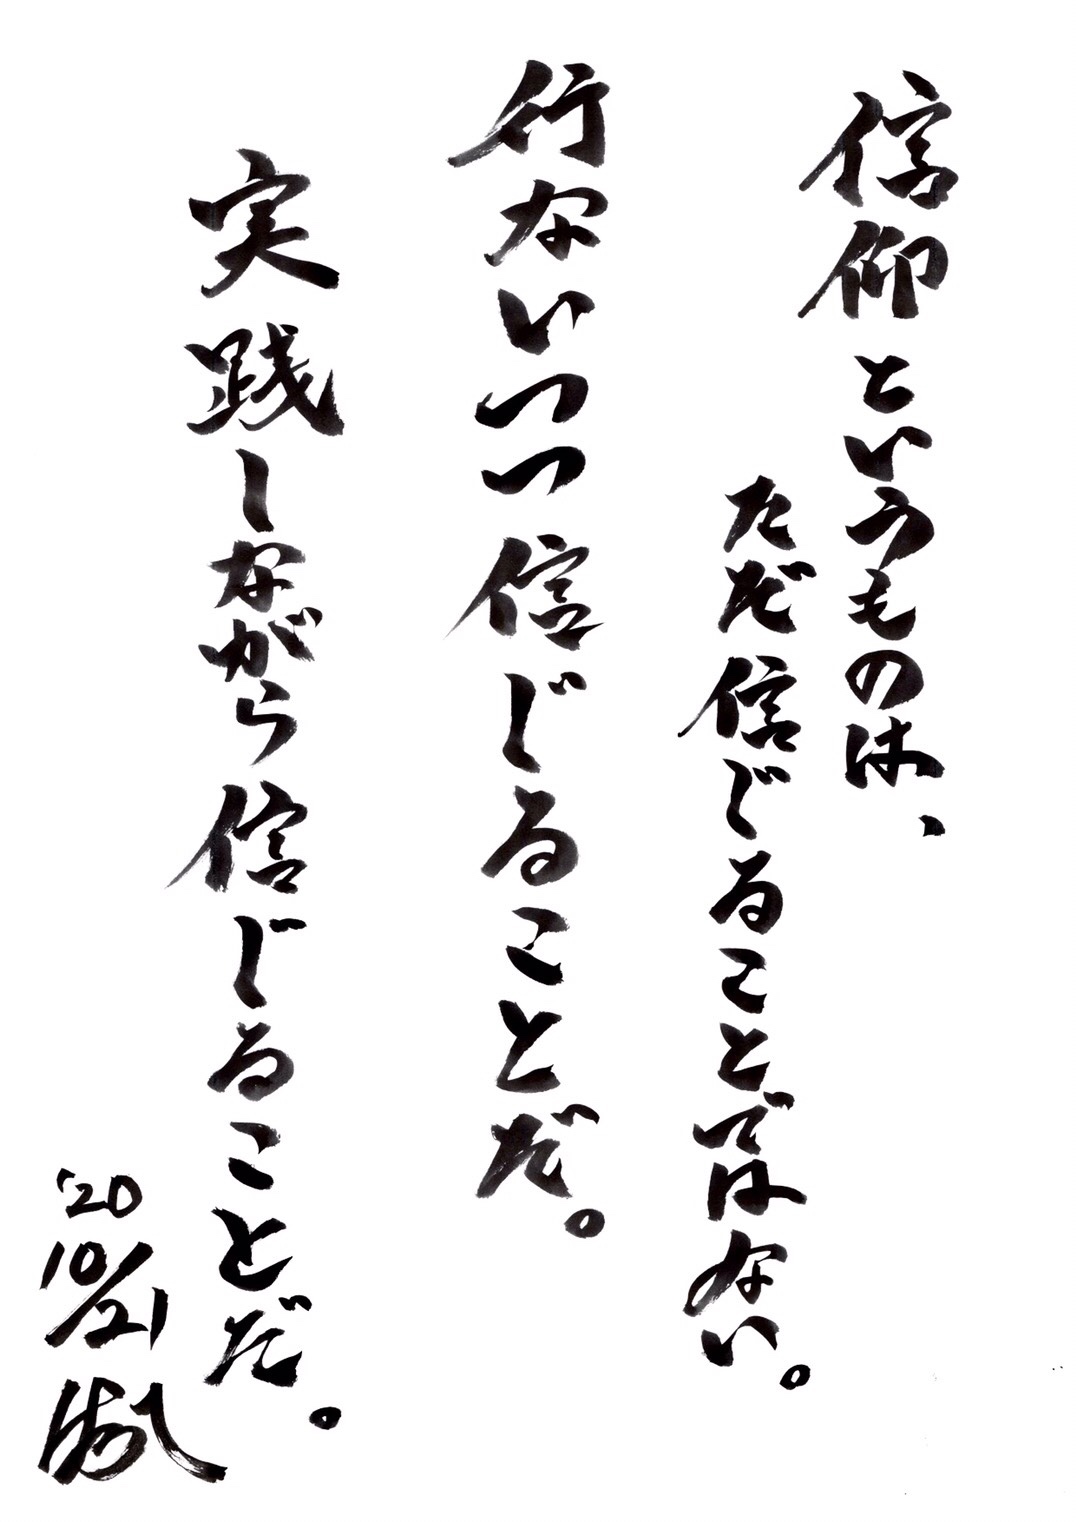 信仰というものは、
ただ信じることではない。
行ないつつ信じることだ。
実践しながら信じることだ。
'20
10/21